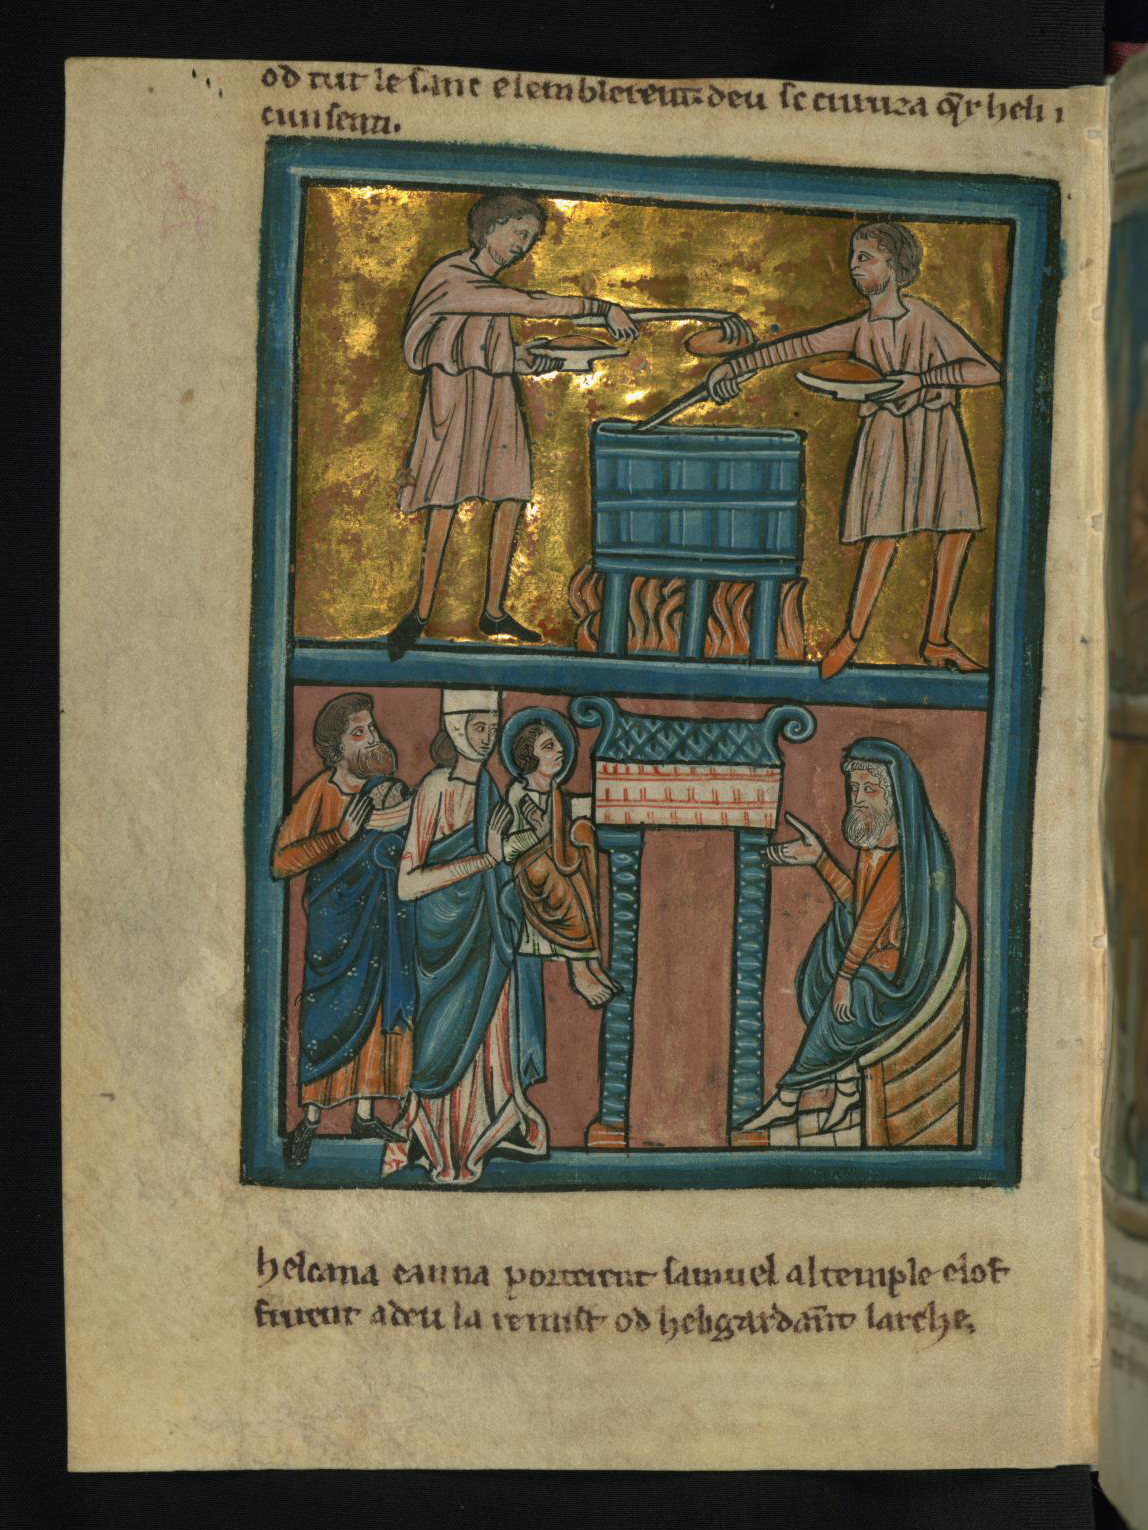 od tut le sanc e lemblerent: deu se curuza q̄r heli i
cunsenti.
helcana e anna porterent samuel al temple e lof
frirent a deu la remist od heli gardāt larche.